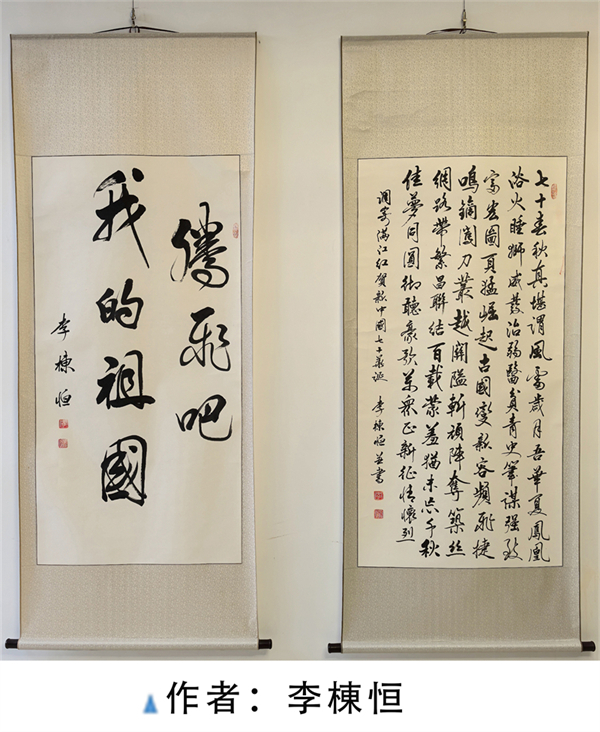 騰飛吧
我的祖國
李棟恒
七十春秋真堪謂風雷歲月吾華夏鳳凰
浴火睡獅威發治弱醫貧青史筆謀强致
富宏圖頁猛崛起古國變新容頻飛捷
鳴鏑闖刀叢越關隘斬頑陣奪築絲
網路帶繁昌聯結百載蒙羞猶未忘千秋
佳夢同圓卻聽豪歌萬衆正新征情懷烈
調寄滿江紅賀新中國七十華誕 李棟恒並書
作者：李棟恒